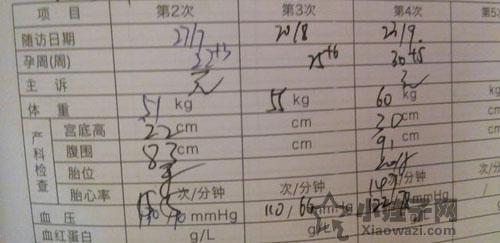 项 目 第2次 第3次 第4次 第5
随访日期 27/7 20/8 23/9
孕周(周) 22+3 25+6 30+5
主 诉 无 无
体 重 51 kg 55 kg 60 kg
产科检查 宫底高 22 cm cm 30 cm
腹围 83 cm cm 9 cm
胎位
胎心率 次/分钟 次/分钟 次/分钟
血 压 mmHg 110/66 mmHg mmHg
血红蛋白 g/L g/L
小娃子网
www.Xiaowazi.com